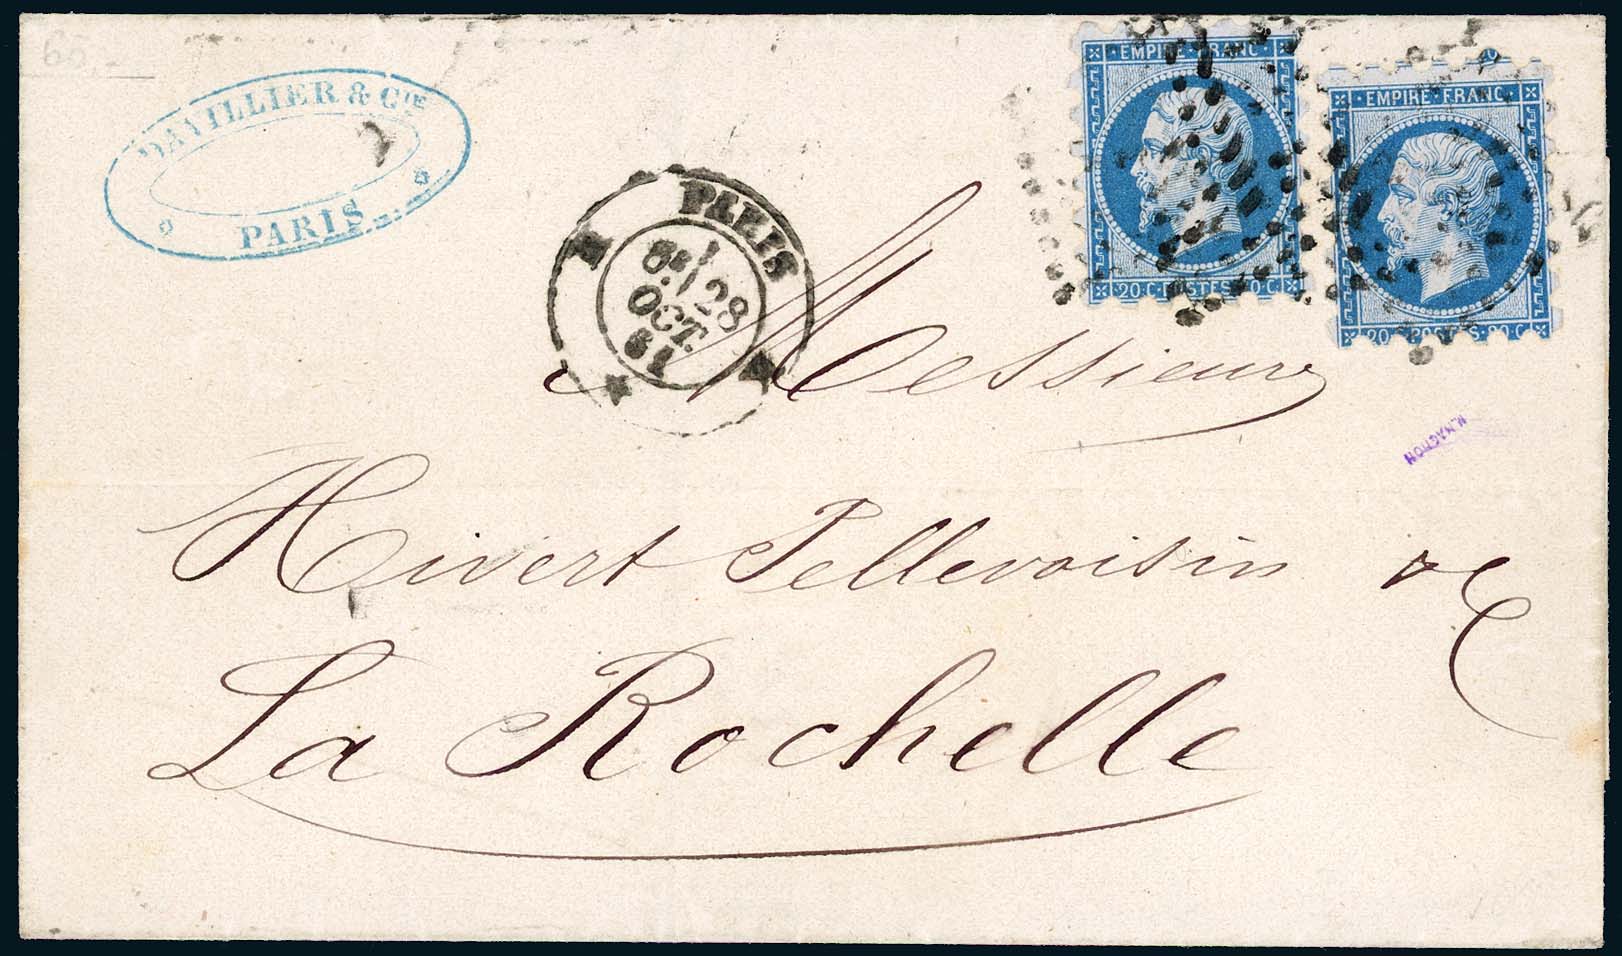 DAVILLIER & CIE
PARIS
PARIS
28
OCT.
61
EMPIRE · FRANC ·
20 · C · POSTES · 20 · C ·
EMPIRE · FRANC ·
20 · C · POSTES · 20 · C ·
Messieurs
Hivert Pellevoisin & C
La Rochelle